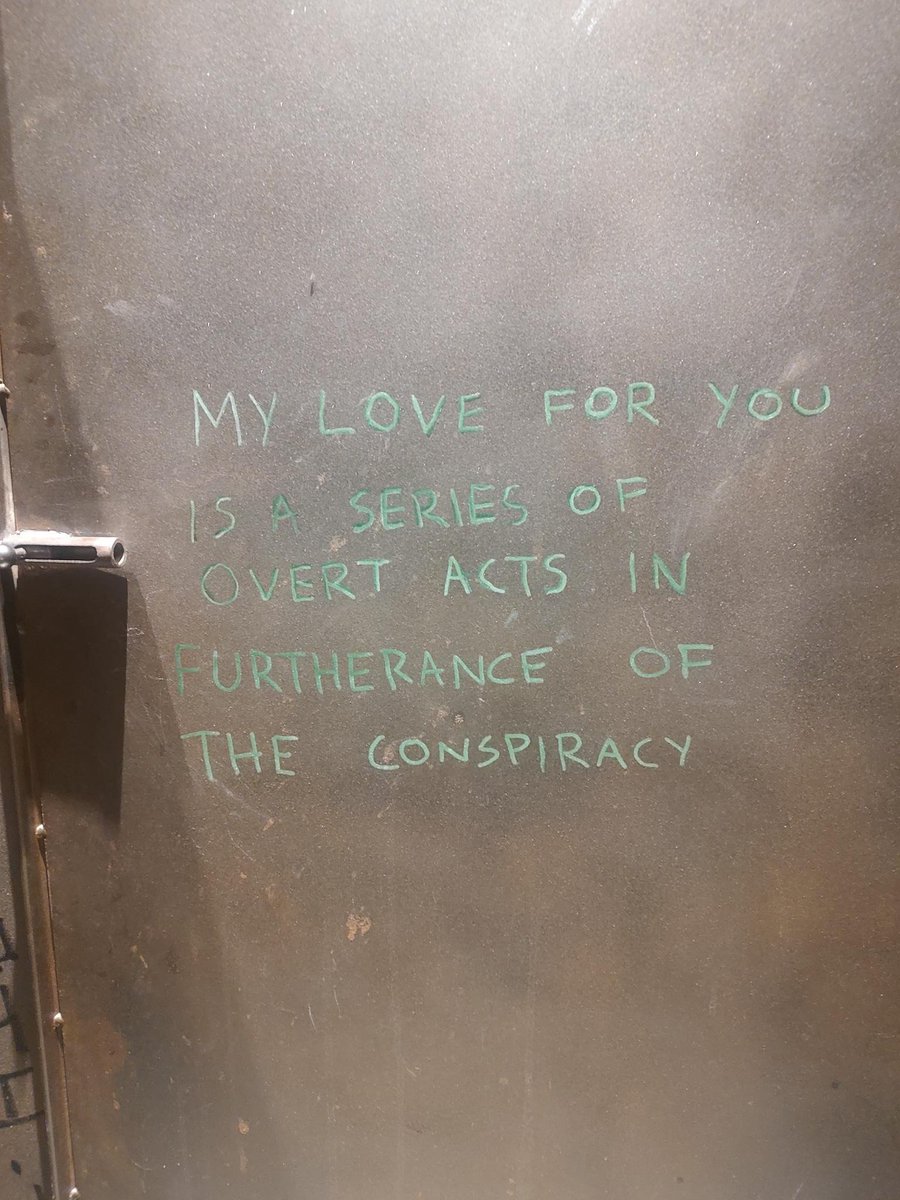 MY LOVE FOR YOU
IS A SERIES OF
OVERT ACTS IN
FURTHERANCE OF
THE CONSPIRACY